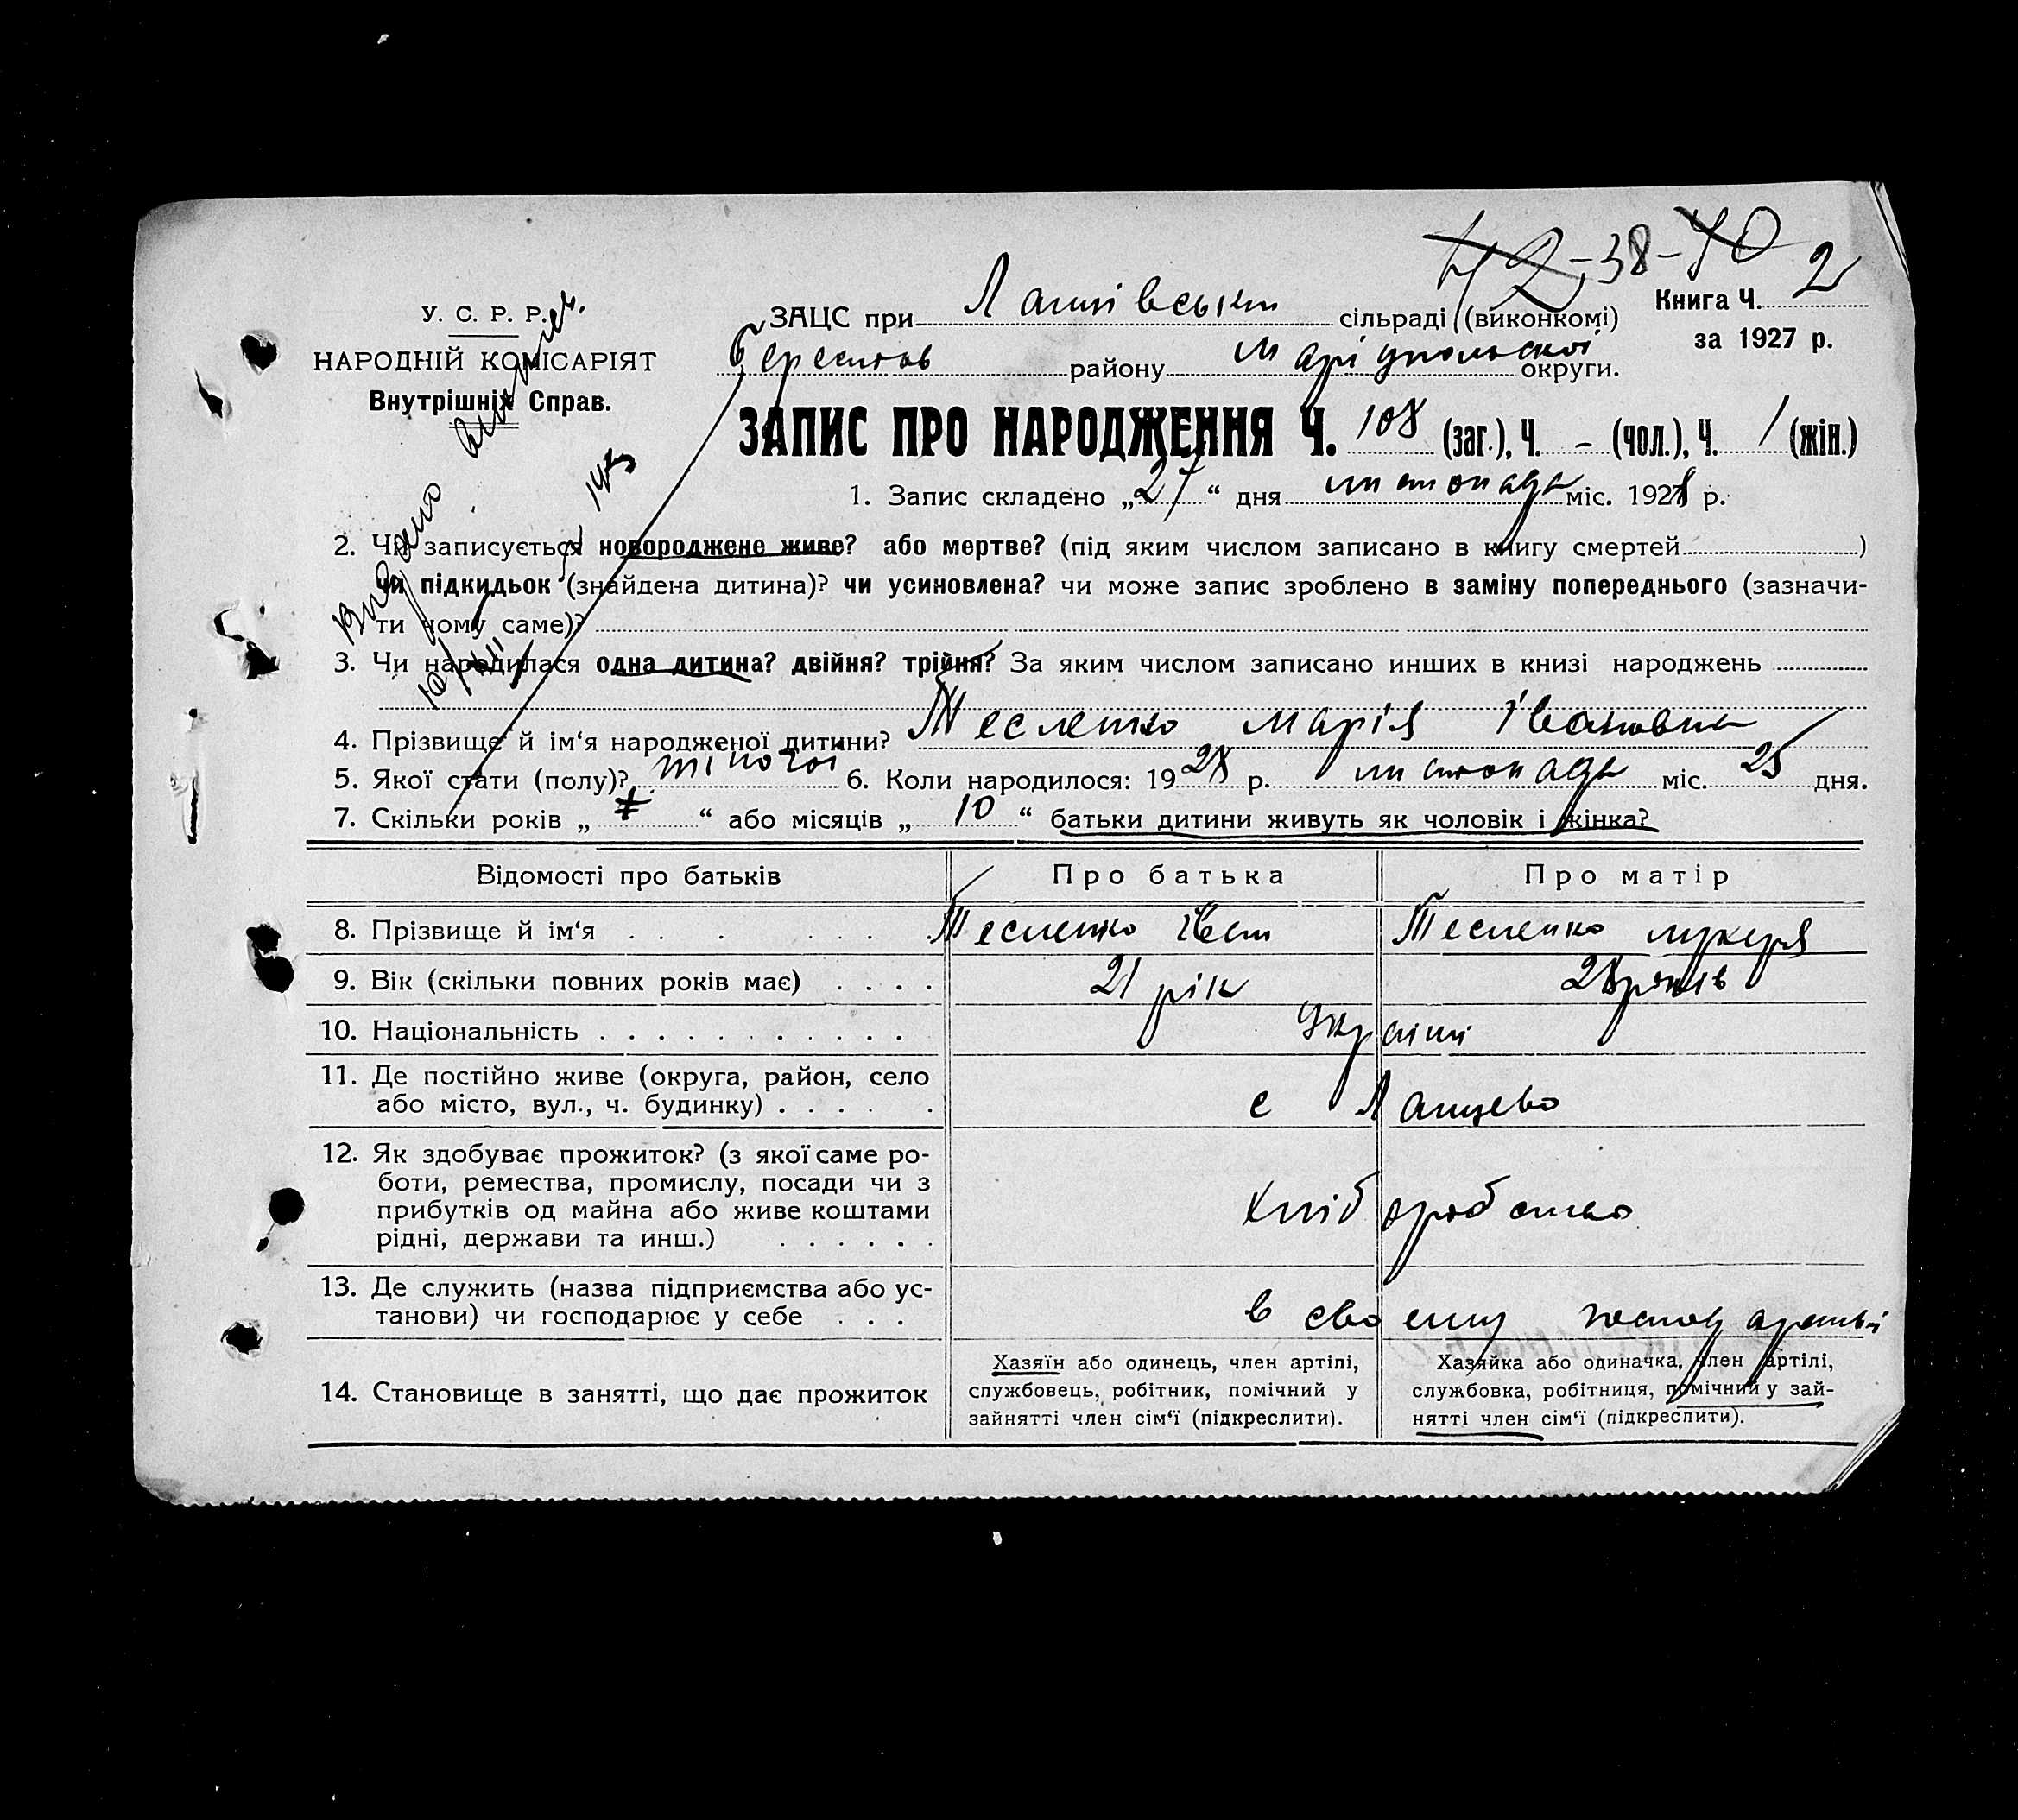 42-38-40
У. С. Р. Р.
НАРОДНІЙ КОМІСАРІЯТ
Внутрішніх Справ.
ЗАЦС при сільраді (виконкомі) Книга Ч. 2
за 1927 р.
Берестов району Маріупольскої округи.
ЗАПИС ПРО НАРОДЖЕННЯ Ч. 108 (заг.), Ч. - (чол.), Ч. 1 (жін.)
1. Запис складено „27“ дня листопада міс. 1928 р.
Видано
2. Чи записується новороджене живе? або мертве? (під яким числом записано в книгу смертей)
чи підкидьок (знайдена дитина)? чи усиновлена? чи може запис зроблено в заміну попереднього (зазначи-
ти чому саме)?
3. Чи народилася одна дитина? двійня? трійня? За яким числом записано инших в книзі народжень
4. Прізвище й ім‘я народженої дитини? Тесленко Марія Івановна
5. Якої стати (полу)? жіночої 6. Коли народилося: 1928 р. листопада міс. 25 дня.
7. Скільки років „ “ або місяців „10“ батьки дитини живуть як чоловік і жінка?
Відомості про батьків Про батька Про матір
8. Прізвище й ім‘я Тесленко Іван Тесленко Лукеря
9. Вік (скільки повних років має) 21 рік років
10. Національність Україн
11. Де постійно живе (округа, район, село
або місто, вул., ч. будинку) с Лащево
12. Як здобуває прожиток? (з якої саме ро-
боти, ремества, промислу, посади чи з
прибутків од майна або живе коштами
рідні, держави та инш.) Хліборобство
13. Де служить (назва підприємства або ус-
танови) чи господарює у себе в своему господарстві
14. Становище в занятті, що дає прожиток
Хазяїн або одинець, член артілі,
службовець, робітник, помічний у
зайнятті член сім‘ї (підкреслити).
Хазяйка або одиначка, член артілі,
службовка, робітниця, помічний у зай-
нятті член сім‘ї (підкреслити).